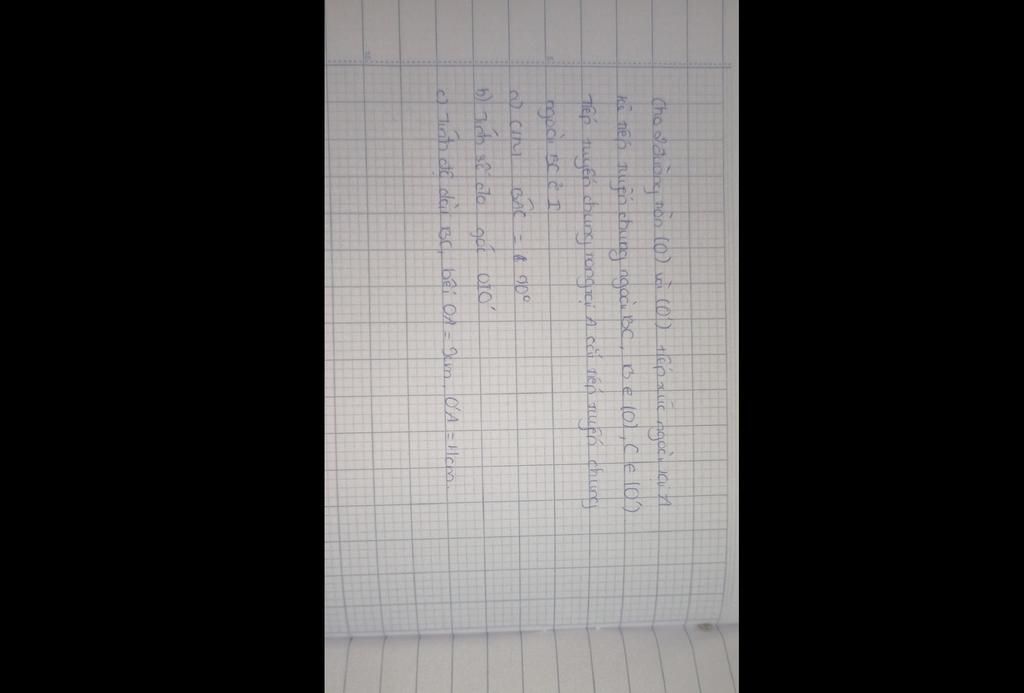 Cho 2 đường tròn (O) và (O') tiếp xúc ngoài tại A
Kẻ tiếp tuyến chung ngoài BC, B ∈ (O), C ∈ (O')
Tiếp tuyến chung trong tại A cắt tiếp tuyến chung
ngoài BC ở I
a) CM BÂC = 90°
b) Tính số đo góc OIO'
c) Tính độ dài BC, biết OA = 9cm, O'A = 4cm.